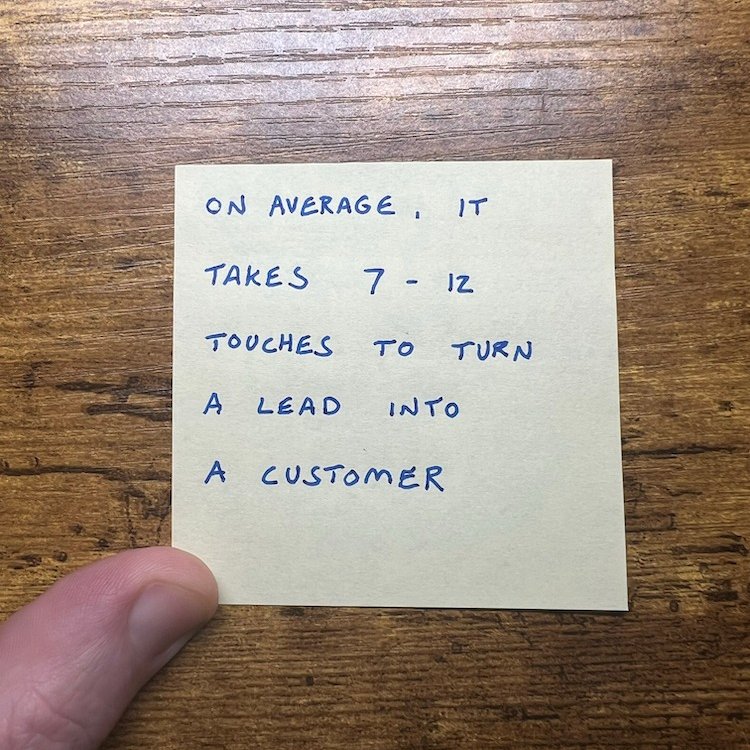 ON AVERAGE, IT
TAKES 7 - 12
TOUCHES TO TURN
A LEAD INTO
A CUSTOMER